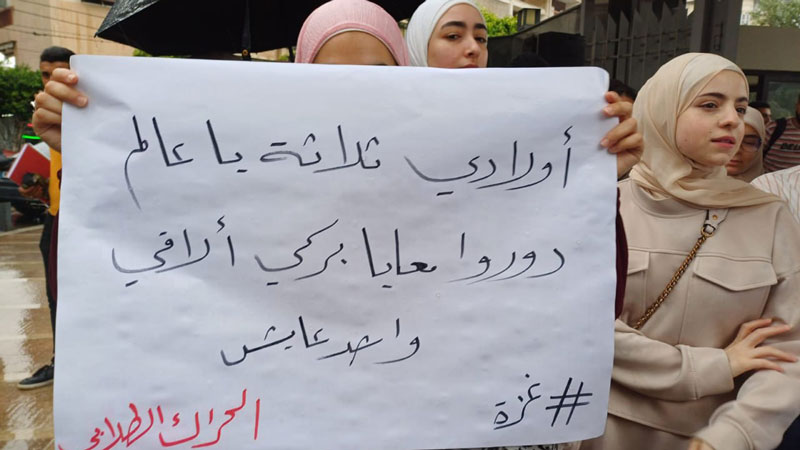 أولادي ثلاثة يا عالم
دوروا معايا بركي ألاقي
واحد عايش
#غزة
الحراك الطلابي